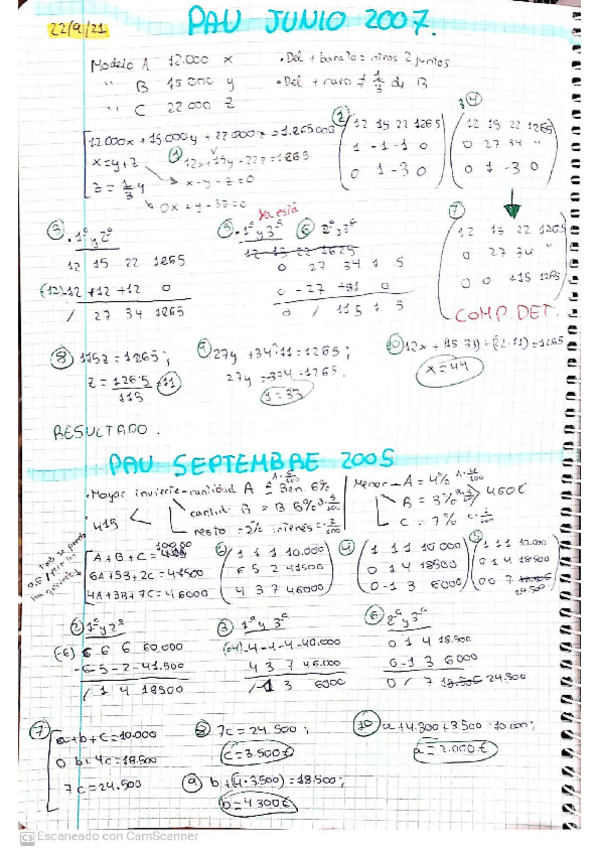 22/9/21
PAU JUNIO 2007.
Modelo A 12.000 x
" B 15 000 y
" C 22 000 z
• Del + barato = otros 2 juntos
• Del + caro = 1/3 de B
12.000x + 15.000y + 22.000z = 1.265000
x = y + z
z = 1/3 y
① 12x + 15y - 22z = 1265
x - y - z = 0
0x + y - 3z = 0
②
12 15 22 1265
1 -1 -1 0
0 1 -3 0
④
12 15 22 1265
0 27 34 "
0 1 -3 0
③ • 1ª y 2ª
12 15 22 1265
(-12) -12 +12 +12 0
/ 27 34 1265
Ya está
⑤ • 1ª y 3ª ⑥ 2ª y 3ª
0 / 115
⑦
12 15 22 1265
0 27 34 "
0 0 115 1265
COMP. DET.
⑧ 115z = 1265;
z = 1265/115 = 11
⑨ 27y + 34·11 = 1265;
27y = 374 - 1265.
y = 33
⑩ 12x + (15·33) + (22·11) = 1265
x = 44
RESULTADO.
PAU SEPTEMBRE 2005
• Mayor invierte = cantidad A = Ben 6%
cantid. B = B 5%
resto = 2% interés
415
Menor - A = 4%
B = 3%
C = 7%
460€
A + B + C =
10000
6A + 5B + 2C = 41500
4A + 3B + 7C = 46000
1 1 1 10.000
6 5 2 41500
4 3 7 46000
④
1 1 1 10 000
0 1 4 18500
0 -1 3 6000
1 1 1 10.000
0 1 4 18500
0 0 7
24.500
② 1ª y 2ª
(-6) 6 6 6 60.000
-6 -5 -2 -41.500
/ 1 4 18500
③ 1ª y 3ª
-4 -4 -4 -40.000
4 3 7 46.000
/ -1 3 6000
⑥ 2ª y 3ª
0 1 4 18.500
0 -1 3 6000
0 / 7 24.500
⑦
a + b + c = 10.000
0 b + 4c = 18.500
7c = 24.500
⑧ 7c = 24.500;
c = 3.500€
⑨ b + (4·3500) = 18.500;
b = 4300€
⑩ a + 4.300 + 3.500 = 10.000;
a = 2.000€
CS Escaneado con CamScanner